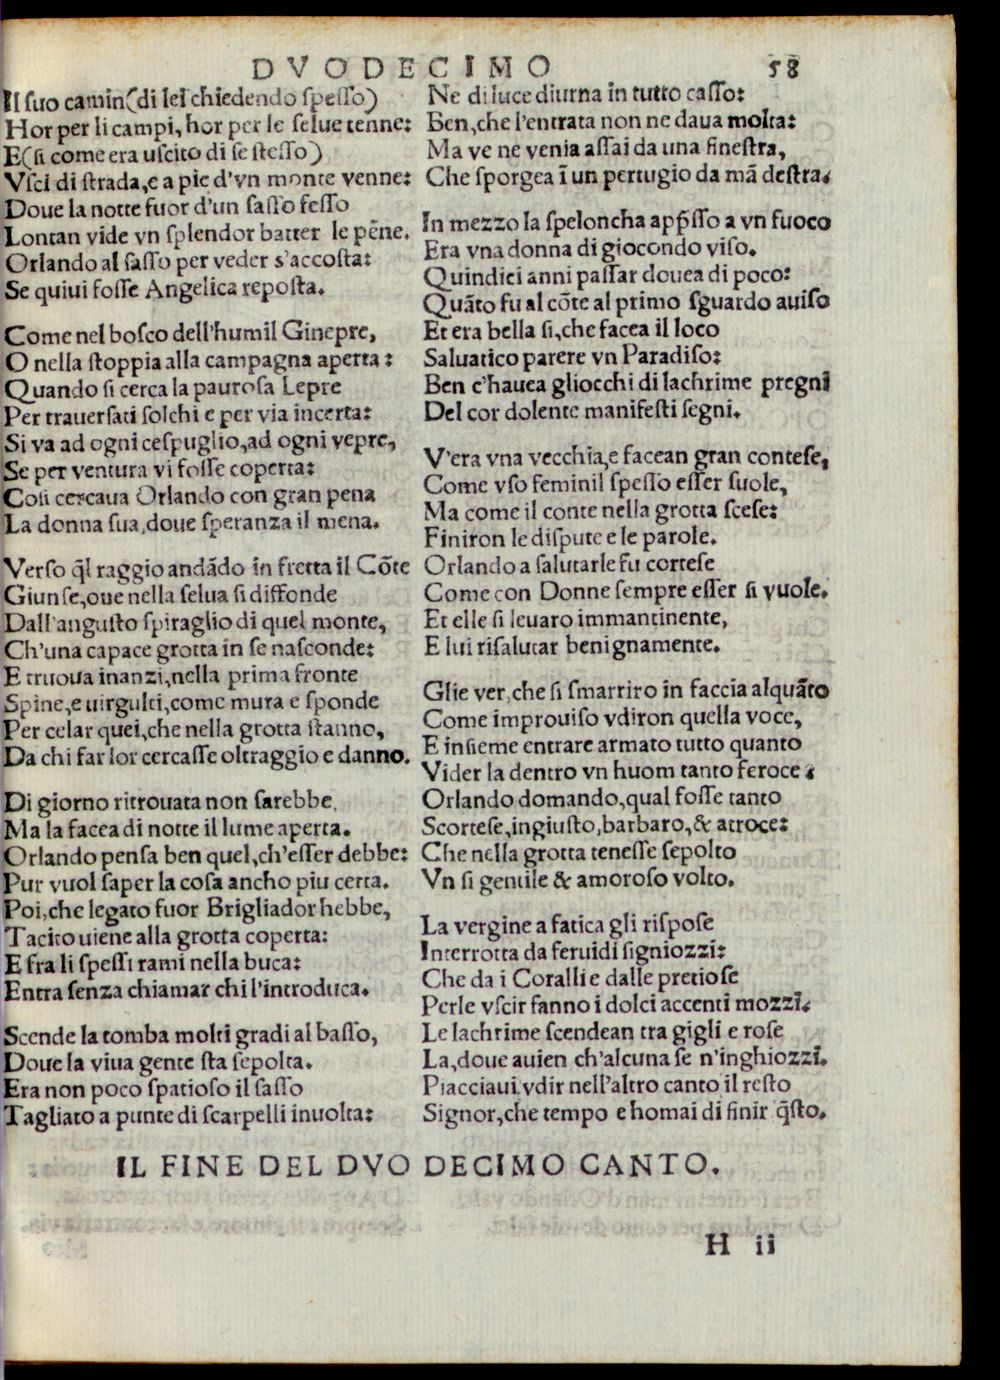 DVODECIMO 58
Il suo camin (di lei chiedendo spesso)
Hor per li campi, hor per le selue tenne:
E (si come era uscito di se stesso)
Vsci di strada, e a pie d'vn monte venne:
Doue la notte fuor d'un sasso fesso
Lontan vide vn splendor batter le pēne.
Orlando al sasso per veder s'accosta:
Se quiui fosse Angelica reposta.
Come nel bosco dell'humil Ginepre,
O nella stoppia alla campagna aperta:
Quando si cerca la paurosa Lepre
Per trauersati solchi e per via incerta:
Si va ad ogni cespuglio, ad ogni vepre,
Se per ventura vi fosse coperta:
Cosi cercaua Orlando con gran pena
La donna sua, doue speranza il mena.
Verso q̃l raggio andādo in fretta il Cōte
Giunse, oue nella selua si diffonde
Dall'angusto spiraglio di quel monte,
Ch'una capace grotta in se nasconde:
E truoua inanzi, nella prima fronte
Spine, e uirgulti, come mura e sponde
Per celar quei, che nella grotta stanno,
Da chi far lor cercasse oltraggio e danno.
Di giorno ritrouata non sarebbe,
Ma la facea di notte il lume aperta.
Orlando pensa ben quel, ch'esser debbe:
Pur vuol saper la cosa ancho piu certa.
Poi, che legato fuor Brigliador hebbe,
Tacito uiene alla grotta coperta:
E fra li spessi rami nella buca:
Entra senza chiamar chi l'introduca.
Scende la tomba molti gradi al basso,
Doue la viua gente sta sepolta.
Era non poco spatioso il sasso
Tagliato a punte di scarpelli inuolta:
Ne di luce diurna in tutto casso:
Ben, che l'entrata non ne daua molta:
Ma ve ne venia assai da una finestra,
Che sporgea ī un pertugio da mā destra.
In mezzo la speloncha app̃sso a vn fuoco
Era vna donna di giocondo viso.
Quindici anni passar douea di poco:
Quāto fu al cōte al primo sguardo auiso
Et era bella si, che facea il loco
Saluatico parere vn Paradiso:
Ben c'hauea gliocchi di lachrime pregni
Del cor dolente manifesti segni.
V'era vna vecchia, e facean gran contese,
Come vso feminil spesso esser suole,
Ma come il conte nella grotta scese:
Finiron le dispute e le parole.
Orlando a salutarle fu cortese
Come con Donne sempre esser si vuole.
Et elle si leuaro immantinente,
E lui risalutar benignamente.
Glie ver, che si smarriro in faccia alquāto
Come improuiso vdiron quella voce,
E insieme entrare armato tutto quanto
Vider la dentro vn huom tanto feroce:
Orlando domando, qual fosse tanto
Scortese, ingiusto, barbaro, & atroce:
Che nella grotta tenesse sepolto
Vn si gentile & amoroso volto.
La vergine a fatica gli rispose
Interrotta da feruidi signiozzi:
Che da i Coralli e dalle pretiose
Perle vscir fanno i dolci accenti mozzi.
Le lachrime scendean tra gigli e rose
La, doue auien ch'alcuna se n'inghiozzi.
Piacciaui vdir nell'altro canto il resto
Signor, che tempo e homai di finir q̃sto.
IL FINE DEL DVO DECIMO CANTO.
H ii